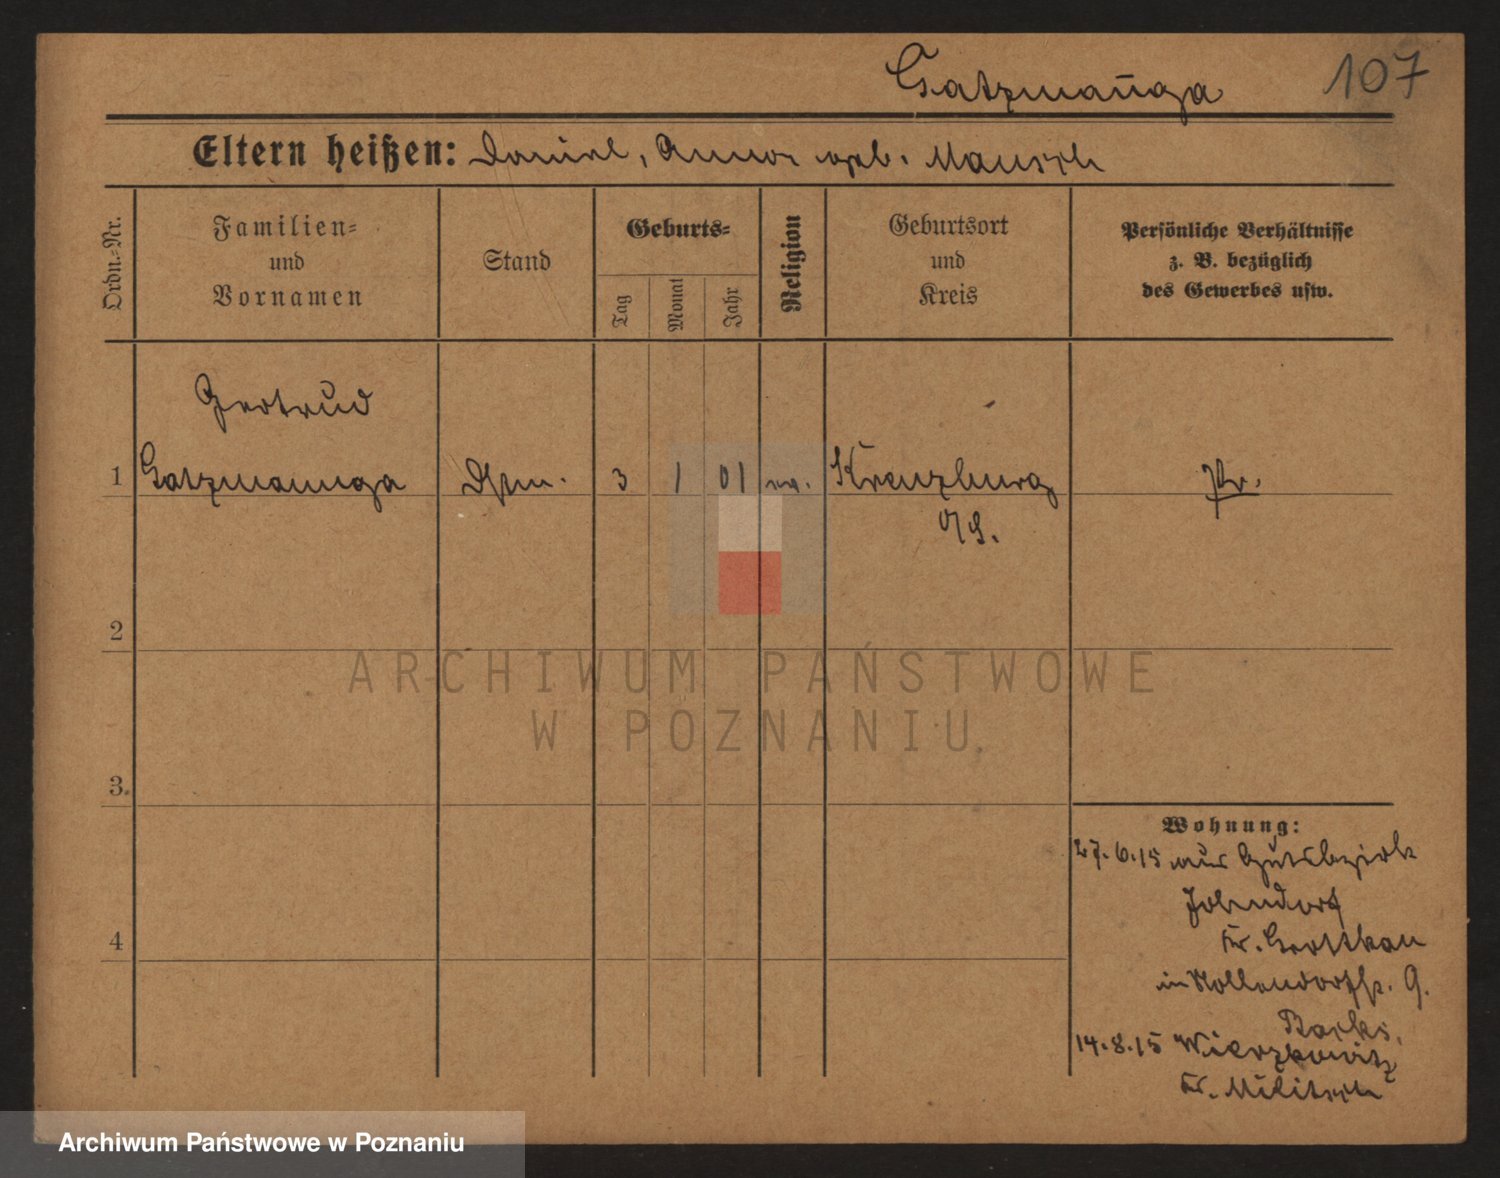 Gatzmanga 107
Eltern heißen: Daniel, Anna geb. Mausch
Ordn.-Nr.
Familien-
und
Vornamen
Stand
Geburts-
Tag
Monat
Jahr
Religion
Geburtsort
und
Kreis
Persönliche Verhältnisse
z. B. bezüglich
des Gewerbes usw.
Gertrud
1 Gatzmannga 3 1 01 ev. Kreuzburg Pr.
O/S.
2
3.
4
Wohnung:
27.6.15 aus Gutsbezirk
Kr. Grottkau
in Nollendorfstr. 9.
14.8.15 Wierzkowitz
Kr. Militsch
ARCHIWUM PAŃSTWOWE
W POZNANIU
Archiwum Państwowe w Poznaniu